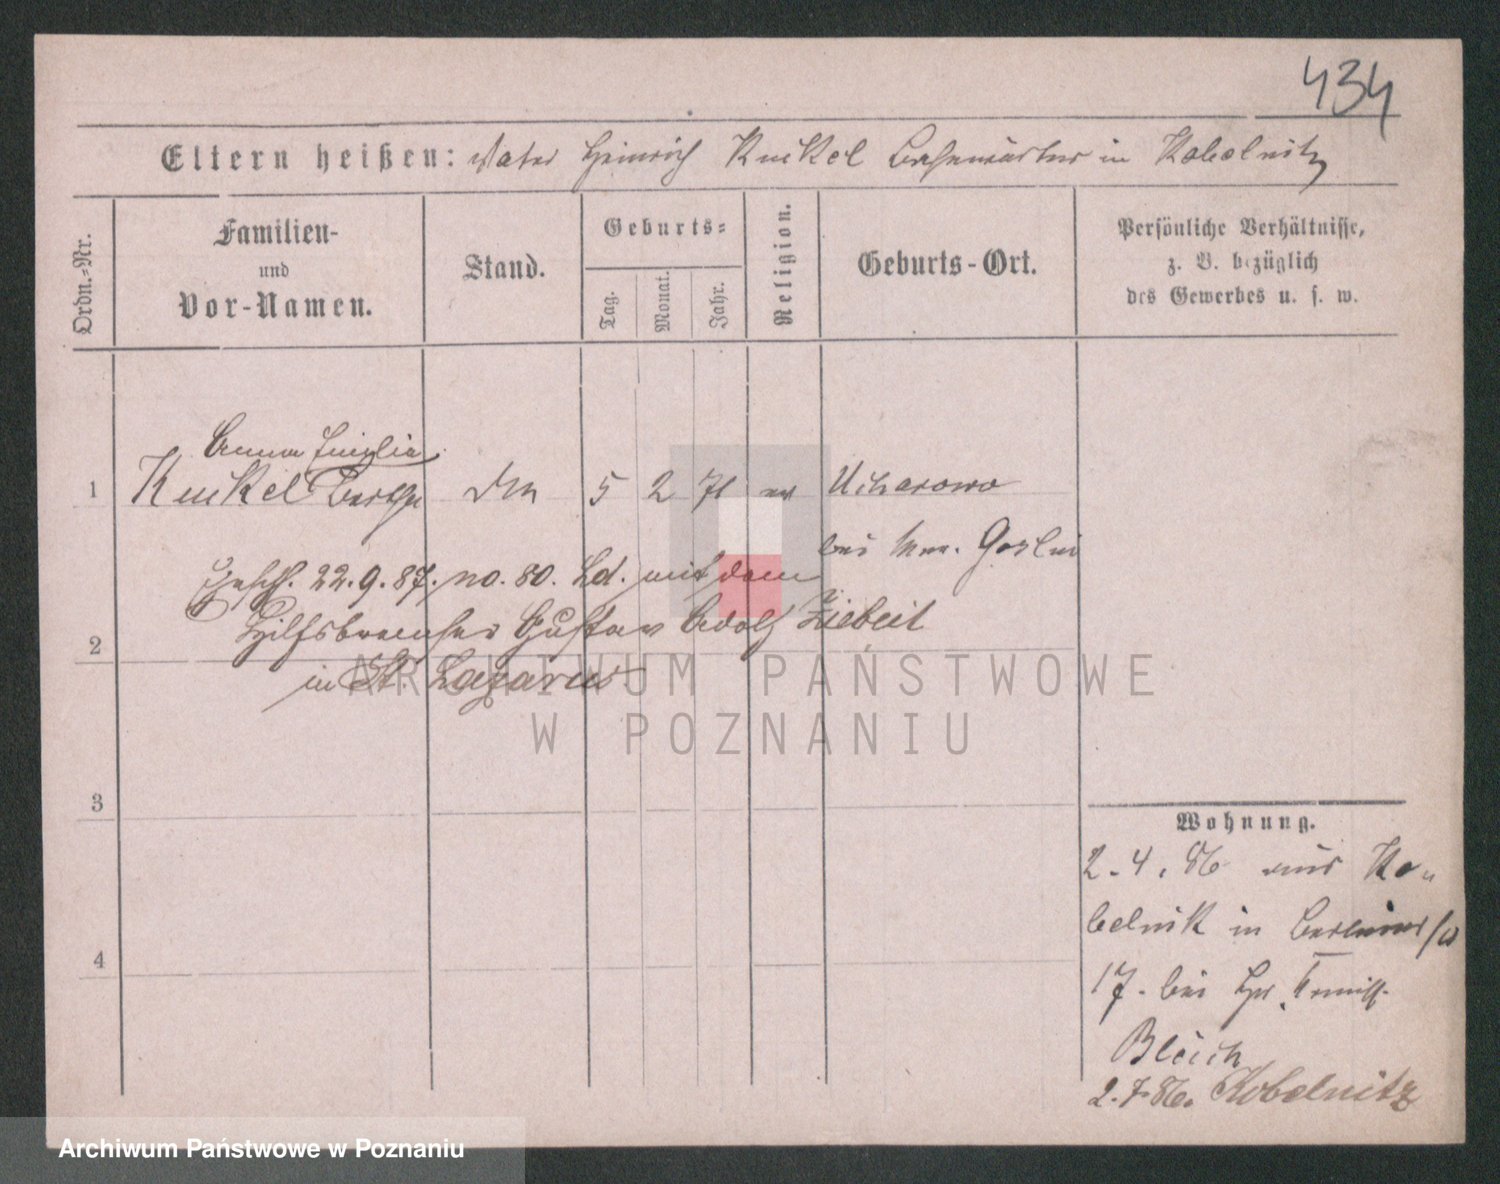 434
Eltern heißen: Vater Heinrich Kunkel Bahnwärter in Kobelnitz
Ordn.-Nr.
Familien-
und
Vor-Namen.
Stand.
Geburts-
Tag.
Monat.
Jahr.
Religion.
Geburts-Ort.
Persönliche Verhältnisse,
z. B. bezüglich
des Gewerbes u. s. w.
Anna Emilie
1 Kunkel Bertha 5 2 71 ev Ucharowo
bei Mur. Goslin
Gesch. 22.9.87. no. 80. Ld. mit dem
Hilfsbremser Gustav Adolf Ziebeil
2
in St. Lazarus
3
4
Wohnung.
2.4.86 aus Ko-
belnik in Berliner
17. bei Hr.
Bleich
2.7.86. Kobelnitz
ARCHIWUM PAŃSTWOWE
W POZNANIU
Archiwum Państwowe w Poznaniu